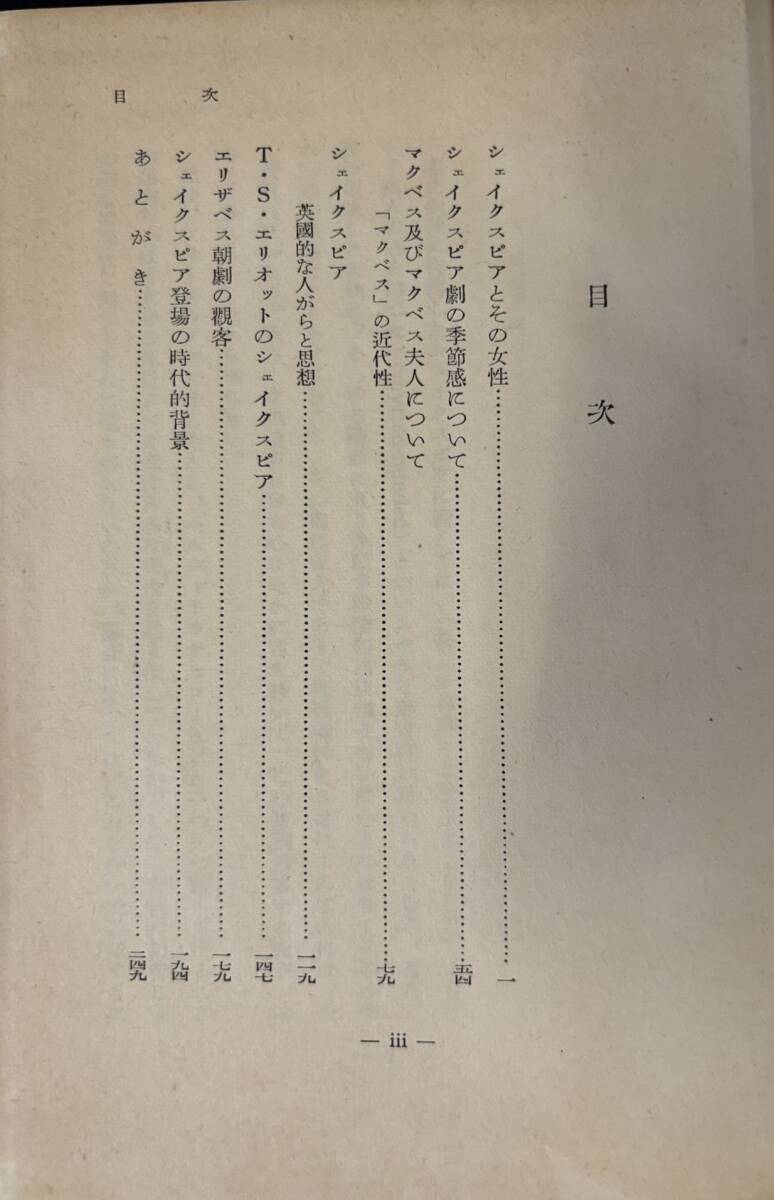 目次
目次
シェイクスピアとその女性……一
シェイクスピア劇の季節感について……五四
マクベス及びマクベス夫人について
「マクベス」の近代性……七九
シェイクスピア
英國的な人がらと思想……一一九
T・S・エリオットのシェイクスピア……一四七
エリザベス朝劇の觀客……一七九
シェイクスピア登場の時代的背景……一九四
あとがき……二四九
— iii —